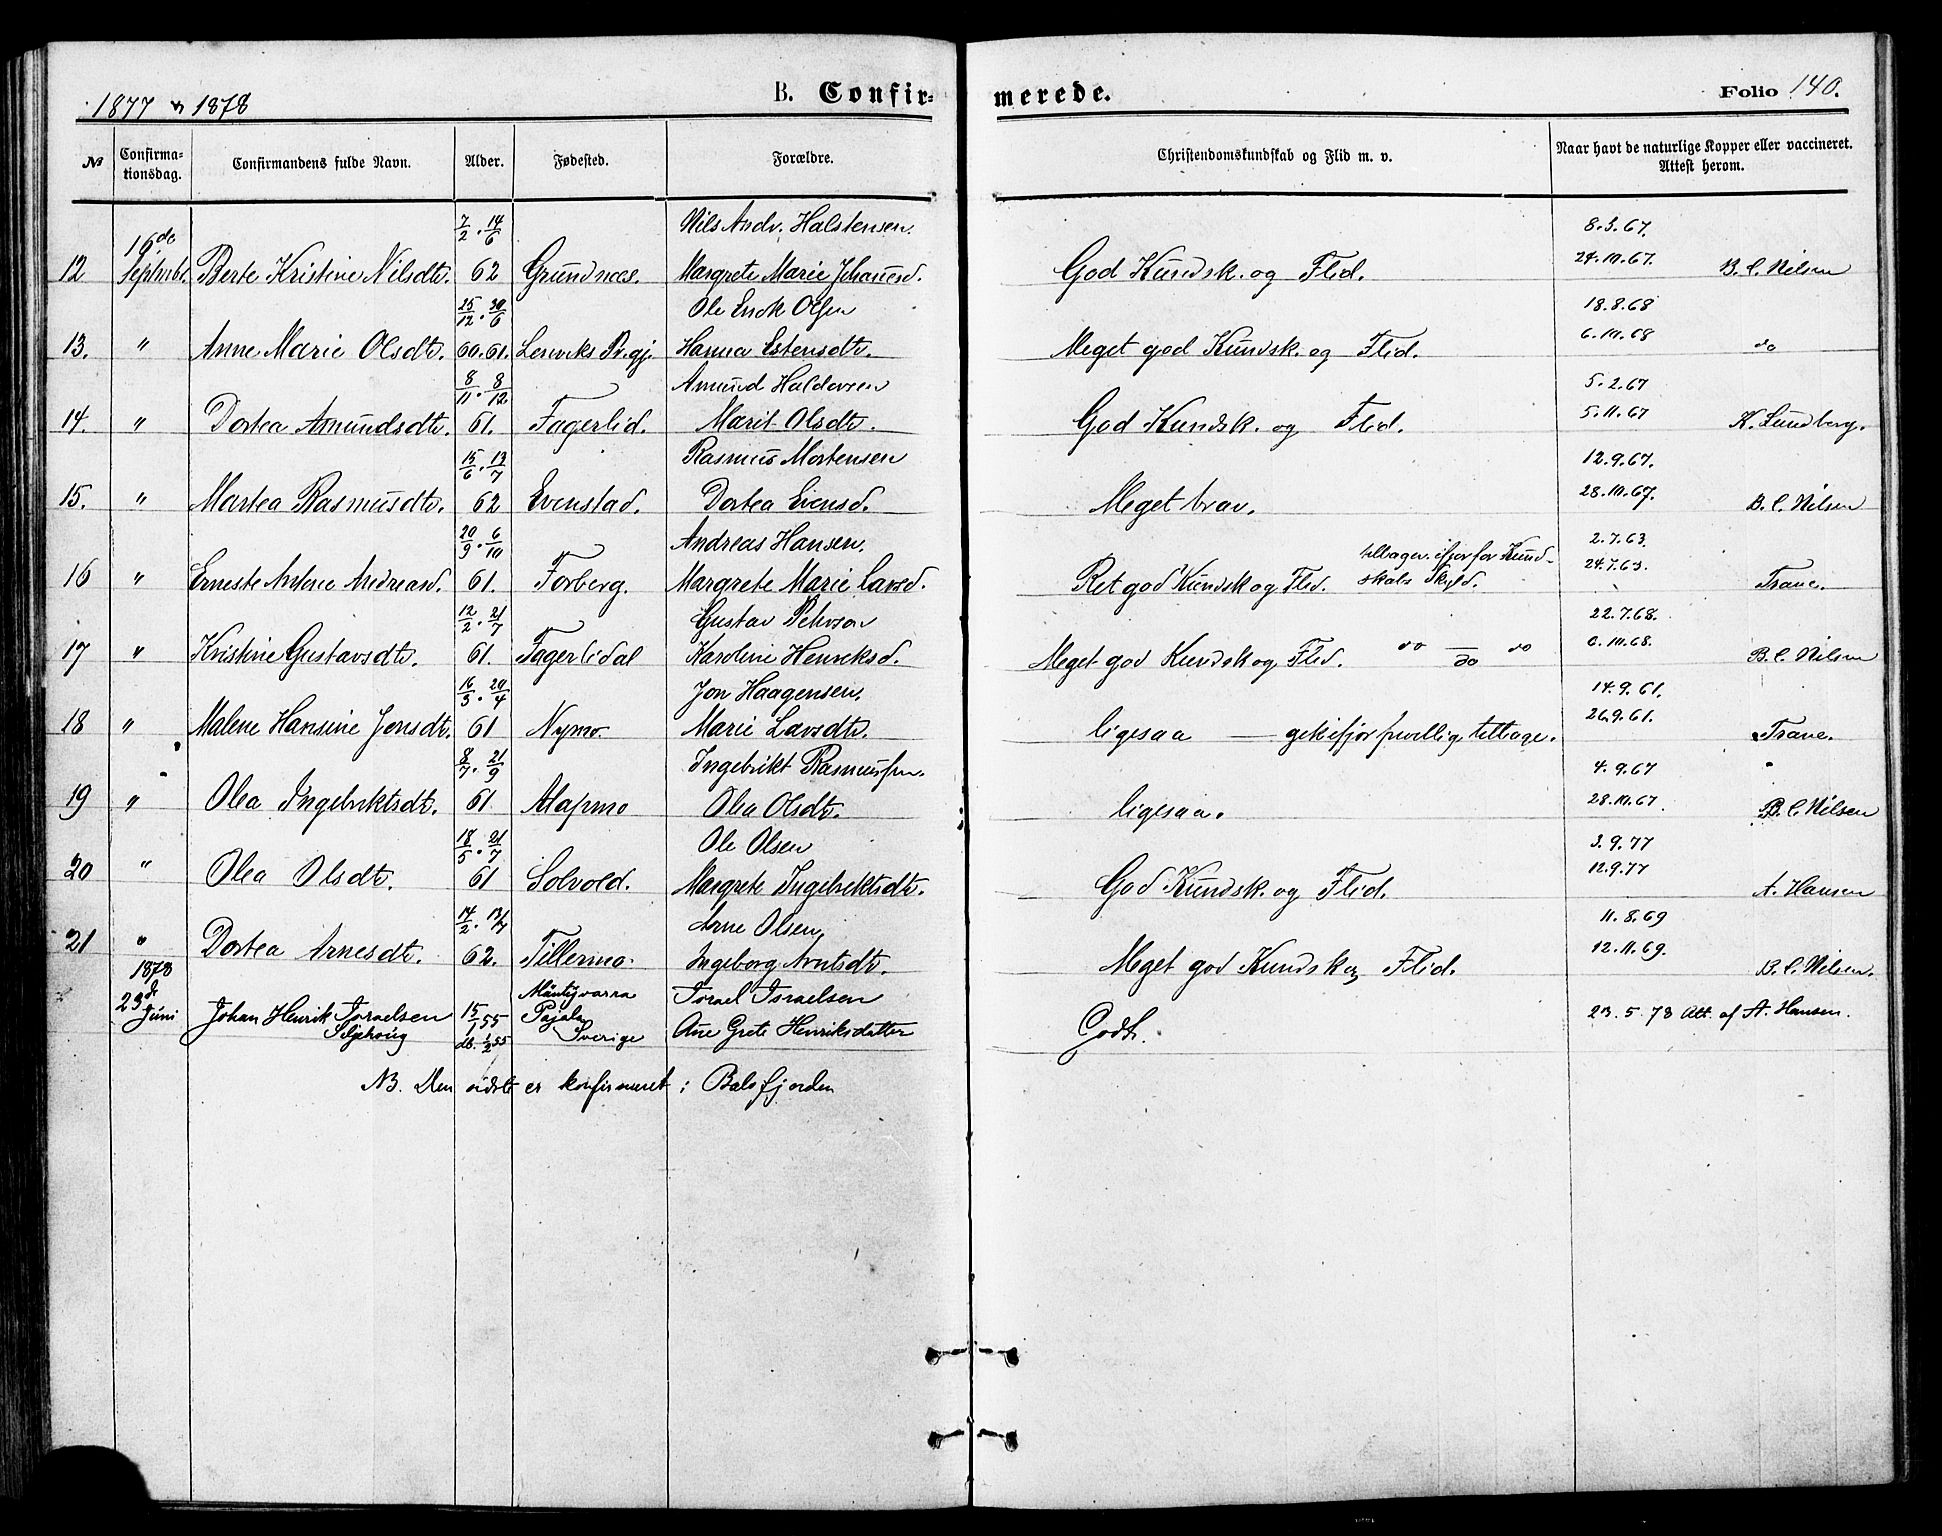 1877 & 1878 B. Confirmerede. Folio 140.
№ Confirmationsdag. Confirmandens fulde Navn. Alder. Fødested. Forældre. Christendomskundskab og Flid m. v. Naar havt de naturlige Kopper eller vaccineret. Attest herom.
16de 7/2 . 14/6 Nils Andr. Halstensen 8.3.67.
12 Septmbr. Berte Kristine Nilsdtr. 62 Grundnæs. Margrete Marie Johannesd. God Kundsk. og Flid. 24.10.67. B. C. Nilsen
25/12 . 20/6 Ole Erick Olsen 18.8.68
13. " Anne Marie Olsdtr. 60.61. Lenviks Pr.gj. Hanna Estensdtr. Meget god Kundsk. og Flid. 6.10.68 do
8/11 . 8/12. Amund Haldorsen 5.2.67
14. " Dortea Amundsdtr. 61. Fagerlid. Marit Olsdtr. God Kundsk. og Flid. 5.11.67 K. Lundberg.
15/6 . 13/7 Rasmus Mortensen 12.9.67.
15. " Martea Rasmusdtr. 62 Evenstad. Dortea Eiensd. Meget brav. 28.10.67. B. C. Nilsen
20/9 . 6/10 Andreas Hansen. 2.7.63.
16 " Erneste Antonie Andreasd. 61. Forberg. Margrete Marie Larsd. Ret god Kundsk og Flid. tilbagev. ifjor for Kundskabs Skyld. 24.7.63. Trane.
12/2 . 21/7 Gustav Pehrson 22.7.68.
17 " Kristine Gustavsdtr. 61. Fagerlidal Karoline Henriksd. Meget god Kundsk og Flid. do do do 6.10.68. B. C. Nilsen
16/3 . 20/4 Jon Haagensen. 14.9.61.
18 " Malene Hansine Jonsdtr. 61 Nymo. Marie Larsdtr. ligesaa — gik ifjor frivillig tilbage. 26.9.61. Trane.
8/7 . 21/9 Ingebrikt Rasmussen. 4.9.67
19 " Olea Ingebriktsdtr. 61 Alapmo Olea Olsdtr. ligesaa. 28.10.67 B. C. Nilsen
18/5 . 21/7 Ole Olsen 3.9.77
20 " Olea Olsdtr. 61 Solvold. Margrete Ingebriktsdtr. God Kundsk. og Flid. 12.9.77 A. Hansen
14/2 . 13/7 Arne Olsen, 11.8.69
21 " Dortea Arnesdtr. 62. Tillermo. Ingeborg Arntsdtr. Meget god Kundsk og Flid. 12.11.69. B. C. Nilsen.
1878
23de Juni Johan Henrik Israelsen 15/1 55 Mäntyvarra Pajala Israel Israelsen Godt. 23.5.78 Att. af A. Hansen.
db. 1/2 55 Sverige Ane Grete Henriksdatter
NB. Den sidste er konfirmeret i Balsfjorden